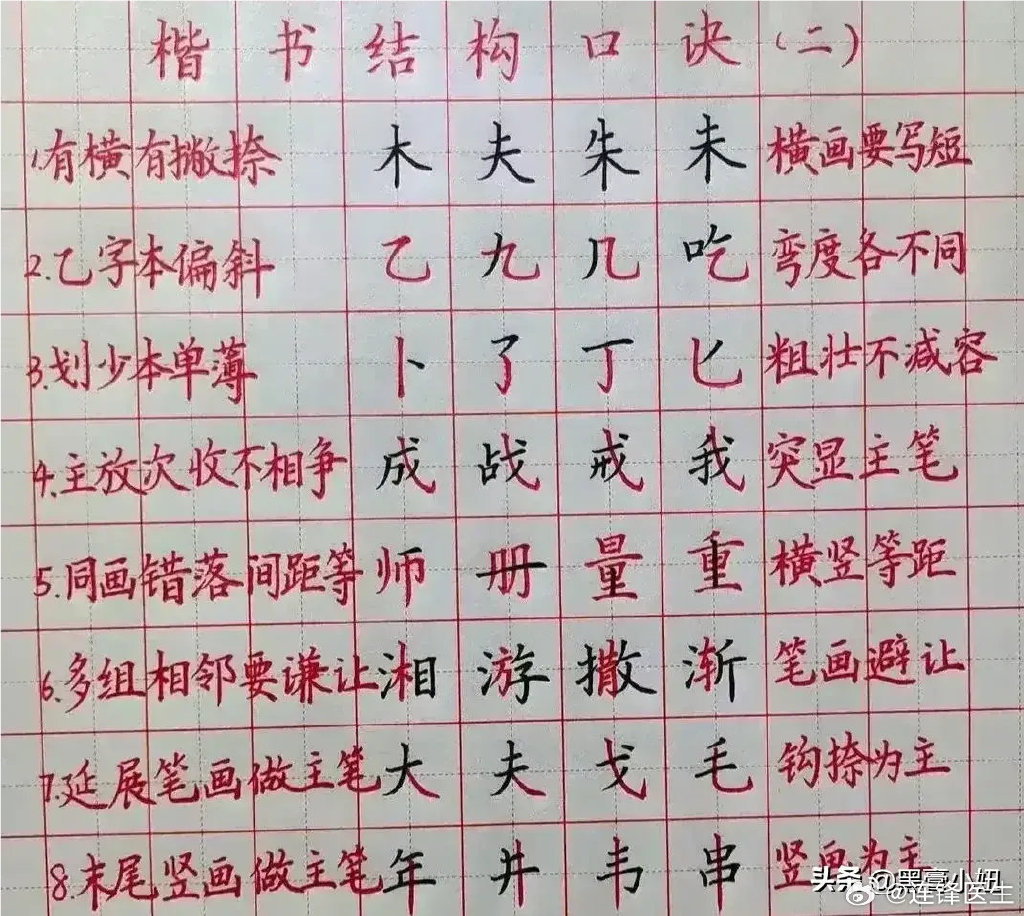 楷书结构口诀(二)
1.有横有撇捺 木 夫 朱 未 横画要写短
2.乙字本偏斜 乙 九 几 吃 弯度各不同
3.划少本单薄 卜 了 丁 匕 粗壮不减容
4.主放次收不相争 成 战 戒 我 突显主笔
5.同画错落间距等 师 册 量 重 横竖等距
6.多组相邻要谦让 湘 游 撒 渐 笔画避让
7.延展笔画做主笔 大 夫 戈 毛 钩捺为主
8.末尾竖画做主笔 年 井 韦 串 竖画为主
头条 @黑膏小妞
@连锋医生